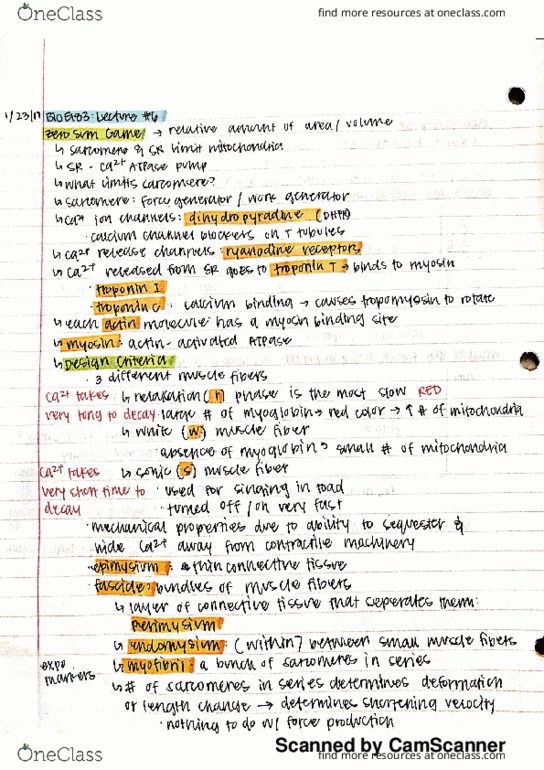 OneClass
find more resources at oneclass.com
1/23/17 BioE103: Lecture #6
Zero Sum Game → relative amount of area/volume
↳ sarcomere & SR limit mitochondria
↳ SR - Ca2+ ATPase pump
↳ what limits sarcomere?
↳ sarcomere: force generator / work generator
↳ Ca2+ ion channels: dihydropyradine (DHPR)
· calcium channel blockers on T tubules
↳ Ca2+ release channels: ryanodine receptors
↳ Ca2+ released from SR goes to troponin T → binds to myosin
· troponin I
· troponin C: calcium binding → causes tropomyosin to rotate
↳ each actin molecule has a myosin binding site
↳ myosin: actin-activated ATPase
↳ Design Criteria
· 3 different muscle fibers
Ca2+ takes ↳ relaxation (r) phase is the most slow RED
very long to decay · large # of myoglobin → red color → ↑ # of mitochondria
↳ white (w) muscle fiber
· absence of myoglobin → small # of mitochondria
Ca2+ takes ↳ sonic (s) muscle fiber
very short time to · used for singing in toad
decay · turned off/on very fast
· mechanical properties due to ability to sequester &
hide Ca2+ away from contractile machinery
· epimysium: thin connective tissue
fascicle: bundles of muscle fibers
↳ layer of connective tissue that seperates them:
perimysium
↳ endomysium: (within) between small muscle fibers
expo markers ↳ myofibril: a bunch of sarcomeres in series
↳ # of sarcomeres in series determines deformation
or length change → determines shortening velocity
· nothing to do w/ force production
Scanned by CamScanner
OneClass
find more resources at oneclass.com